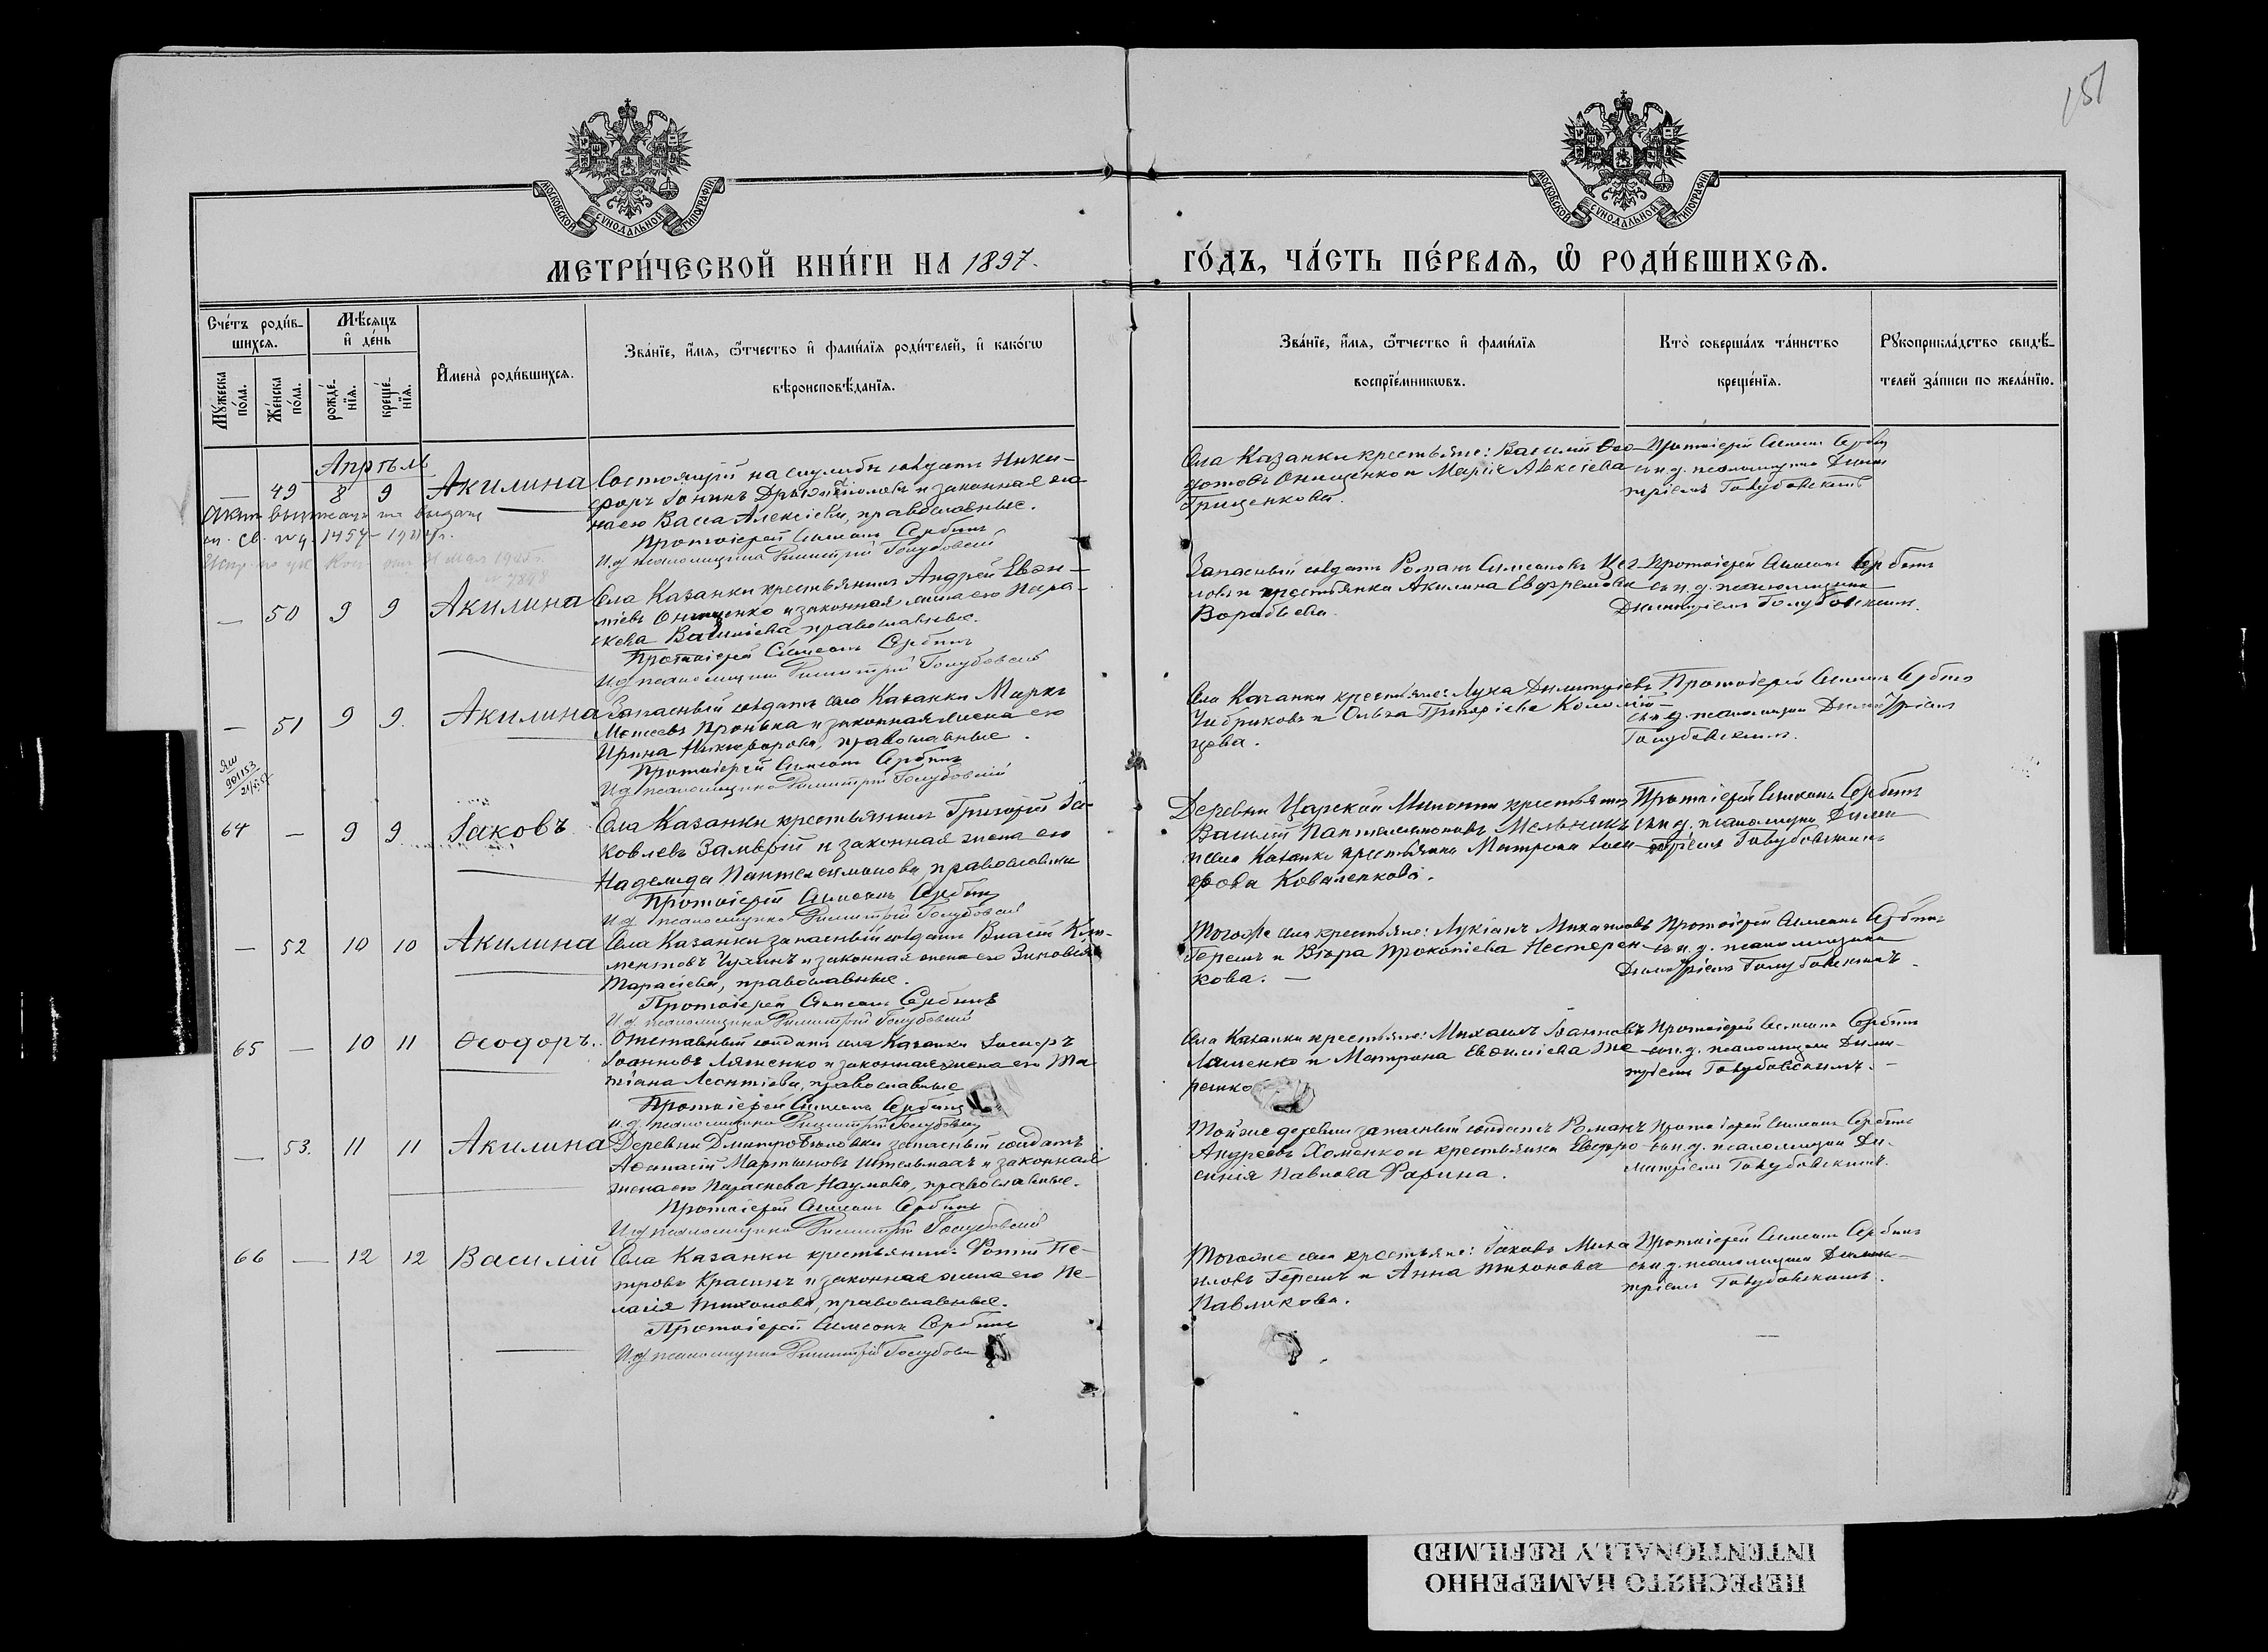 151
МОСКОВСКОЙ СУНОДАЛЬНОЙ ТИПОГРАФІИ
МОСКОВСКОЙ СУНОДАЛЬНОЙ ТИПОГРАФІИ
МЕТРИ́ЧЕСКОЙ КНИ́ГИ НА 1897.
ГО́ДЪ, ЧА́СТЬ ПЕ́РВАѦ, Ѡ҆ РОДИ́ВШИХСѦ.
Сче́тъ роди́в-
шихсѧ.
Мꙋ́жеска по́ла.
Же́нска по́ла.
Мѣ́сѧцъ
и҆ де́нь
рожде́-
нїѧ.
креще́-
нїѧ.
И҆мена̀ роди́вшихсѧ.
Зва́нїе, и҆́мѧ, ѻ҆́тчество и҆ фами́лїѧ роди́телей, и҆ како́гѡ
вѣроисповѣ́данїѧ.
Зва́нїе, и҆́мѧ, ѻ҆́тчество и҆ фами́лїѧ
воспрїе́мникѡвъ.
Кто̀ соверша́лъ та́инство
креще́нїѧ.
Рꙋкоприкла́дство свидѣ́-
телей за́писи по жела́нїю.
Апрѣль
— 49 8 9 Акилина
Состоящій на службѣ солдатъ Ники-
форъ и законная же
на его Васса Алексіева, православные.
Протоіерей Симеонъ Сербинъ
И.д. псаломщика Димитрій Голубовскій
Села Казанки крестьяне: Василій Ѳео-
дотовъ Онищенко и Марія Алексіева
Грищенкова.
Протоіерей Симеонъ Сербинъ
съ и.д. псаломщика Дими
тріемъ Голубовскимъ
1457 – 192
— 50 9 9 Акилина
Села Казанки крестьянинъ Андрей Евѳи-
міевъ Онищенко и законная жена его Пара-
скева Василіева православные.
Протоіерей Симеонъ Сербинъ
И.д. псаломщика Димитрій Голубовскій
Запасный солдатъ Романъ Симеоновъ
и крестьянка Акилина Евфремова
Воробьева.
Протоіерей Симеонъ Сербинъ
съ и.д. псаломщика
Димитріемъ Голубовскимъ.
— 51 9 9. Акилина
Запасный солдатъ села Казанки Маркъ
Моисеевъ Пронька и законная жена его
Ирина Никифорова, православные.
Протоіерей Симеонъ Сербинъ
И.д. псаломщика Димитрій Голубовскій
Села Казанки крестьяне: Лука Димитріевъ
Чибриковъ и Ольга Григоріева Коломій-
цева.
Протоіерей Симеонъ Сербинъ
съ и.д. псаломщика Димитріемъ
Голубовскимъ.
64 — 9 9 Іаковъ
Села Казанки крестьянинъ Григорій Іа-
ковлевъ Замврій и законная жена его
Надежда Пантелеимонова, православные
Протоіерей Симеонъ Сербинъ
И.д. псаломщика Димитрій Голубовскій
Деревни Царской Милости крестьянинъ
Василій Пантелеимоновъ Мельникъ
и села Казанки крестьянка Матрона Іоси-
фова Коваленкова.
Протоіерей Симеонъ Сербинъ
съ и.д. псаломщика Дими
тріемъ Голубовскимъ
— 52 10 10 Акилина
Села Казанки запасный солдатъ Власій Кли-
ментовъ Чухинъ и законная жена его Зиновія
Тарасіева, православные.
Протоіерей Симеонъ Сербинъ
И.д. псаломщика Димитрій Голубовскій
Тогоже села крестьяне: Лукіанъ Михаиловъ
Герешъ и Вѣра Прокопіева Нестерен-
кова. —
Протоіерей Симеонъ Сербинъ
съ и.д. псаломщика
Димитріемъ Голубовскимъ.
65 — 10 11 Ѳеодоръ.
Отставный солдатъ села Казанки Іосифъ
Іоанновъ Ляшенко и законная жена его Та
тіана Леонтіева, православные
Протоіерей Симеонъ Сербинъ
И.д. псаломщика Димитрій Голубовскій
Села Казанки крестьяне: Михаилъ Іоанновъ
Ляшенко и Матрона Евѳиміева Те
решко
Протоіерей Симеонъ Сербинъ
съ и.д. псаломщика Дими-
тріемъ Голубовскимъ. —
— 53. 11 11 Акилина
Деревни запасный солдатъ
Аѳанасій Мартыновъ и законная
жена его Параскева Наумова, православные.
Протоіерей Симеонъ Сербинъ
И.д. псаломщика Димитрій Голубовскій
Тойже деревни запасный солдатъ Романъ
Андреевъ Хоменко и крестьянка Евфро
синія Павлова Фарина.
Протоіерей Симеонъ Сербинъ
съ и.д. псаломщика Ди-
митріемъ Голубовскимъ.
66 — 12 12 Василій
Села Казанки крестьянинъ Фотій Пе-
тровъ Красинъ и законная жена его Пе-
лагія Тихонова, православные.
Протоіерей Симеонъ Сербинъ
И.д. псаломщика Димитрій Голубовс
Тогоже села крестьяне: Іаковъ Миха
иловъ Герешъ и Анна Тихонова
Павликова.
Протоіерей Симеонъ Сербинъ
съ и.д. псаломщика Дими-
тріемъ Голубовскимъ.
ПЕРЕСНЯТО НАМЕРЕННО
INTENTIONALLY REFILMED